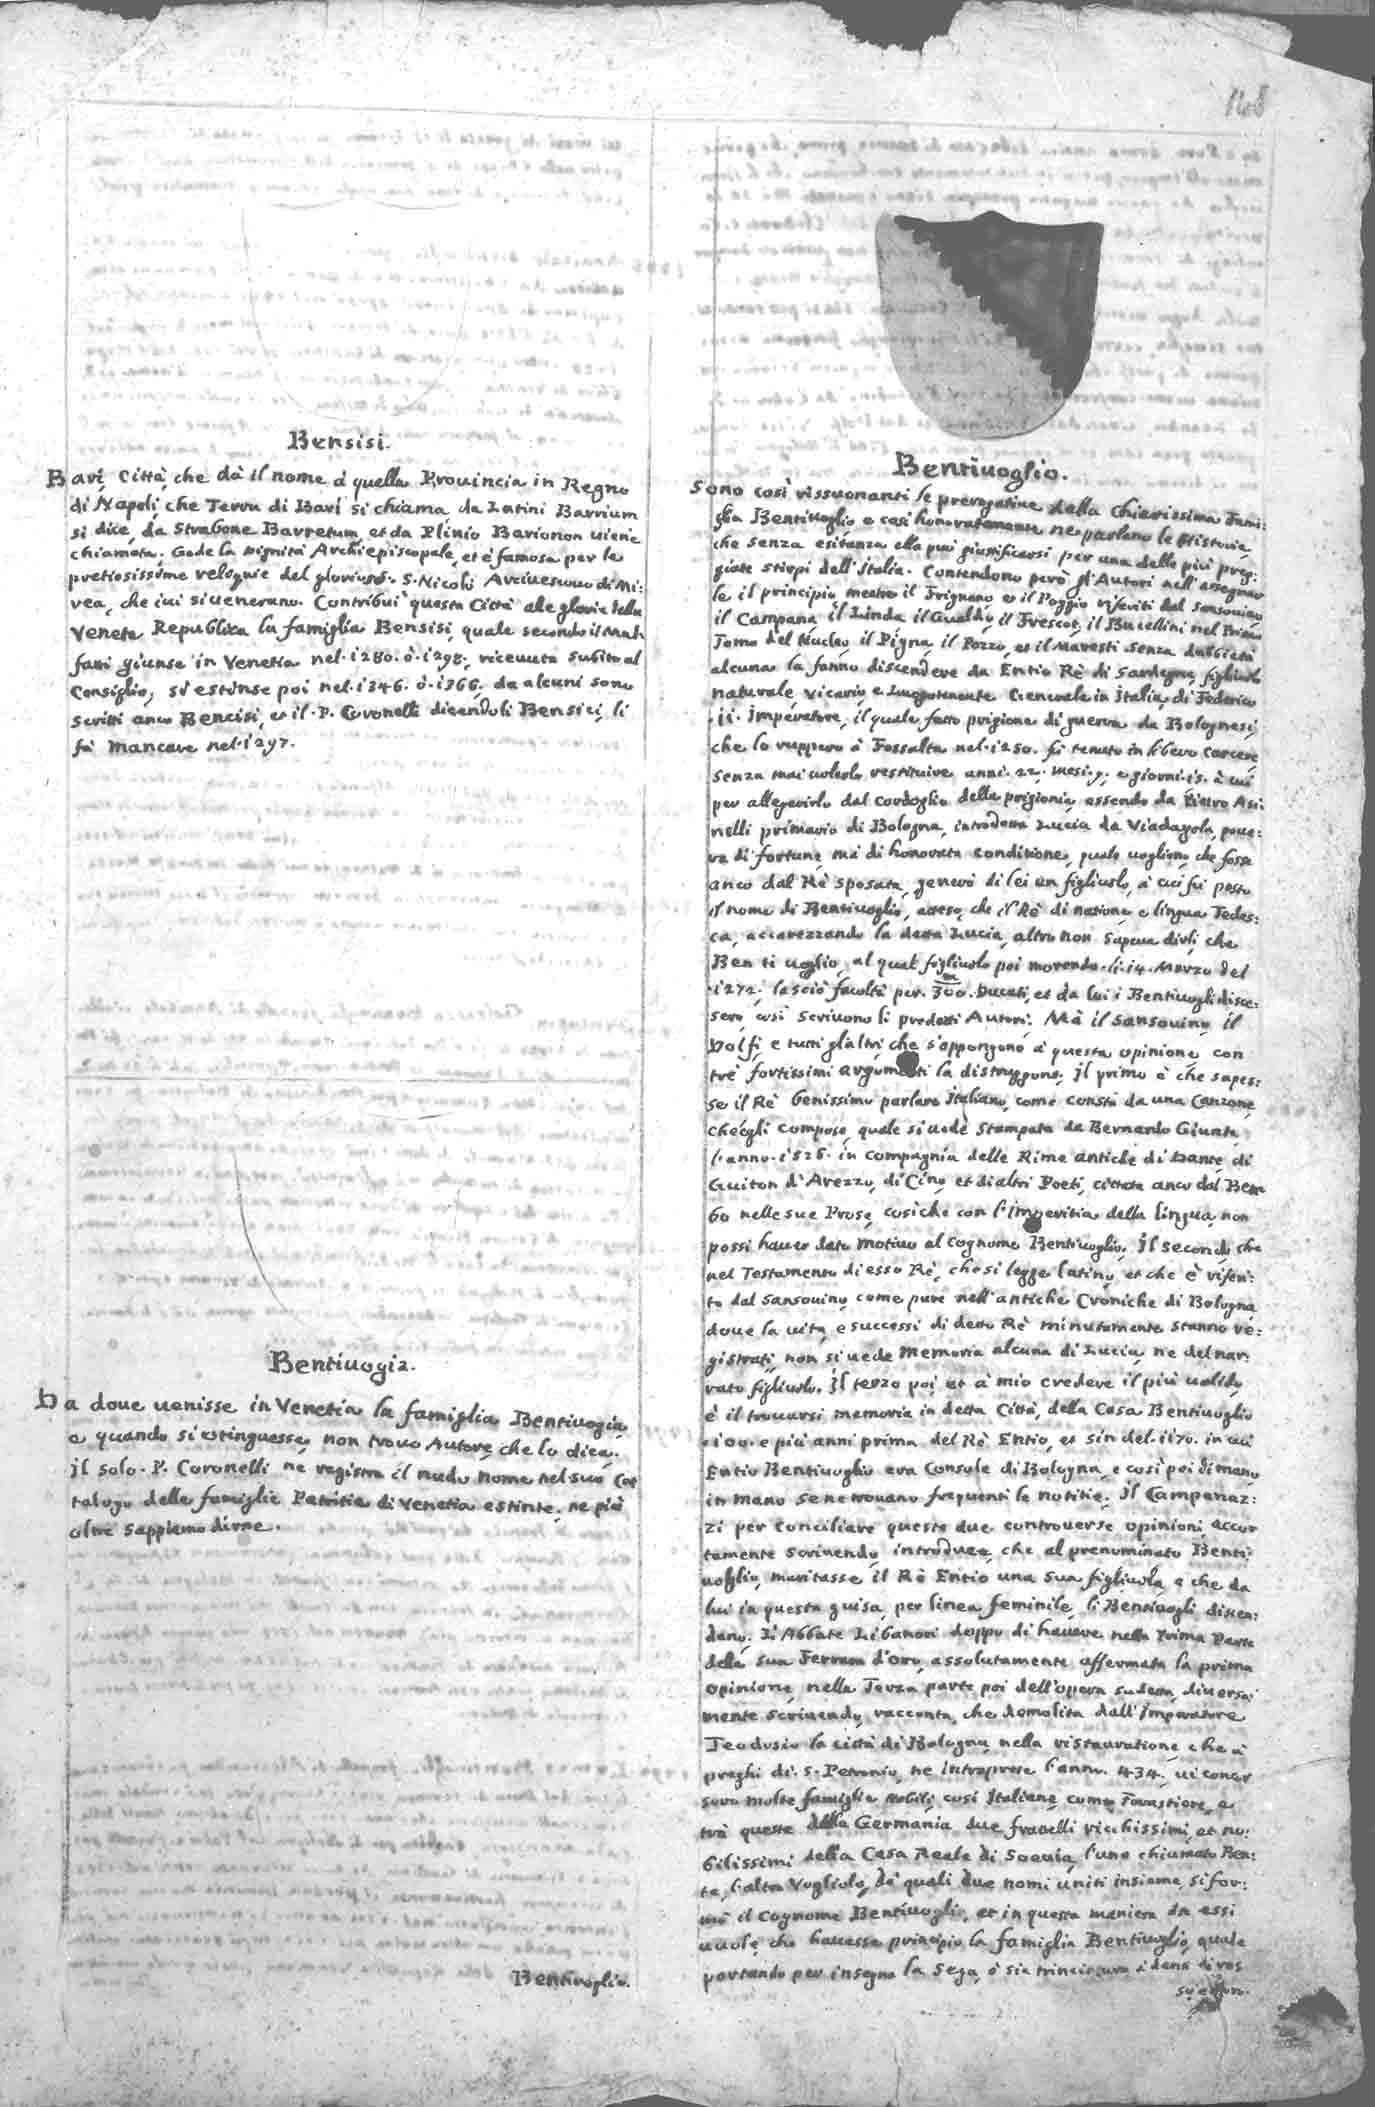 168
Bensisi.
Bari Città, che dà il nome à quella Prouincia in Regno
di Napoli, che Terra di Bari si chiama da Latini Barrium
si dice, da Strabone Barretum, et da Plinio Barionon uiene
chiamata. Gode la Dignità Archiepiscopale, et è famosa per le
pretiosissime reliquie del glorioso S. Nicolò Arciuescouo di Mi:
rea, che iui si uenerano. Contribuì questa Città alle glorie della
Veneta Republica la famiglia Bensisi, quale secondo il Mal:
fatti giunse in Venetia nel .1280. ò .1298. riceuuta subito al
Consiglio, s'estinse poi nel .1346. ò .1366. da alcuni sono
scritti anco Bencisi, et il .P. Coronelli dicendoli Bensici, li
fà mancare nel .1297.
Bentiuogia.
Da doue uenisse in Venetia la famiglia Bentiuogia,
e quando si estinguesse, non trouo Autore, che lo dica.
Il solo .P. Coronelli ne registra il nudo nome nel suo Cat
talogo delle famiglie Patritie di Venetia estinte, ne più
oltre sappiamo dirne.
Bentiuoglio.
Bentiuoglio.
Sono così rissuonanti le prerogatiue della Chiarissima Fami:
glia Bentiuoglio, e così honoratamente ne parlano le Historie,
che senza esitanza ella può giustificarsi per una delle più preg:
giate stirpi dell'Italia. Contendono però gl'Autori nell'assegnar
le il principio mentre il Frignano, et il Poggio riferiti dal Sansouino
il Campana, il Linda, il Gualdo, il Frescot, il Bucellini nel Primo
Tomo del Nucleo, il Pigna, il Pozzo, et il Maresti senza dubbietà
alcuna la fanno discendere da Entio Rè di Sardegna, figliuolo
naturale, Vicario, e Luogotenente Generale in Italia, di Federico
.ii. Imperatore, il quale fatto prigione di guerra da Bolognesi,
che lo ruppero à Fossalta nel .1250. fù tenuto in libero carcere,
senza mai uolerlo restituire anni .22. mesi .9. e giorni .15. à cui
per allegerirlo dal cordoglio della prigionia, essendo da Pietro Asi:
nelli primario di Bologna, introdotta Lucia da Viadagola, poue:
ra di fortune, mà di honorata conditione, quale uogliono, che fosse
anco dal Rè sposata, generò di lei un figliuolo, à cui fù posto
il nome di Bentiuoglio, atteso, che il Rè di natione, e lingua Tedes:
ca, accarezzando la detta Lucia, altro non sapeua dirli, che
Ben ti uoglio, al qual figliuolo poi morendo .li .14. Marzo del
.1272. lasciò facoltà per .300. Ducati, et da lui i Bentiuogli disce:
sero, così scriuono li predetti Autori. Mà il Sansouino, il
Dolfi, e tutti gl'altri, che s'oppongono à questa opinione, con
trè fortissimi argomenti la distruggono. Il primo è che sapes:
se il Rè benissimo parlare Italiano, come consta da una Canzone,
ch'egli compose, quale si uede stampata da Bernardo Giunta
l'anno .1526. in compagnia delle Rime antiche di Dante, di
Guiton d'Arezzo, di Cino, et di altri Poeti, cittata anco dal Bem
bo nelle sue Prose, cosiche con l'imperitia della lingua, non
possi hauer dato motiuo al Cognome Bentiuoglio. Il secondo, che
nel Testamento di esso Rè, che si legge latino, et che è riferi:
to dal Sansouino, come pure nell'antiche Croniche di Bologna,
doue la uita, e successi di detto Rè minutamente stanno re:
gistrati, non si uede memoria alcuna di Lucia, ne del nar:
rato figliuolo. Il terzo poi, et à mio credere il più ualido,
è il trouarsi memoria in detta Città, della Casa Bentiuoglio
.100. e più anni prima del Rè Entio, et sin del .1170. in cui
Entio Bentiuoglio era Console di Bologna, e così poi di mano
in mano se ne trouano frequenti le notitie. Il Campanaz:
zi per conciliare queste due controuerse opinioni, accor
tamente scriuendo, introduce, che al prenominato Benti
uoglio, maritasse il Rè Entio una sua figliuola, e che da
lui in questa guisa, per linea feminile, li Bentiuogli discen:
dano. L'Abbate Libanori doppo di hauere nella Prima Parte
della sua Ferrara d'oro, assolutamente affermata la prima
opinione, nella Terza parte poi dell'opera sudetta, diuersa:
mente scriuendo, racconta, che demolita dall'Imperatore
Teodosio la città di Bologna, nella ristauratione, che à
preghi di .S. Petronio, ne intraprese l'anno .434. ui concor
sero molte famiglie nobili, così Italiane, come Forastiere, e
trà queste della Germania due fratelli ricchissimi, et no:
bilissimi della Casa Reale di Soeuia, l'uno chiamato Ben:
te, l'altro Vogliolo, dà quali due nomi uniti insieme, si for:
mò il Cognome Bentiuoglio, et in questa maniera da essi
uuole, che hauesse principio la famiglia Bentiuoglio, quale
portando per insegna la Sega, ò sia trinciatura à denti di ros